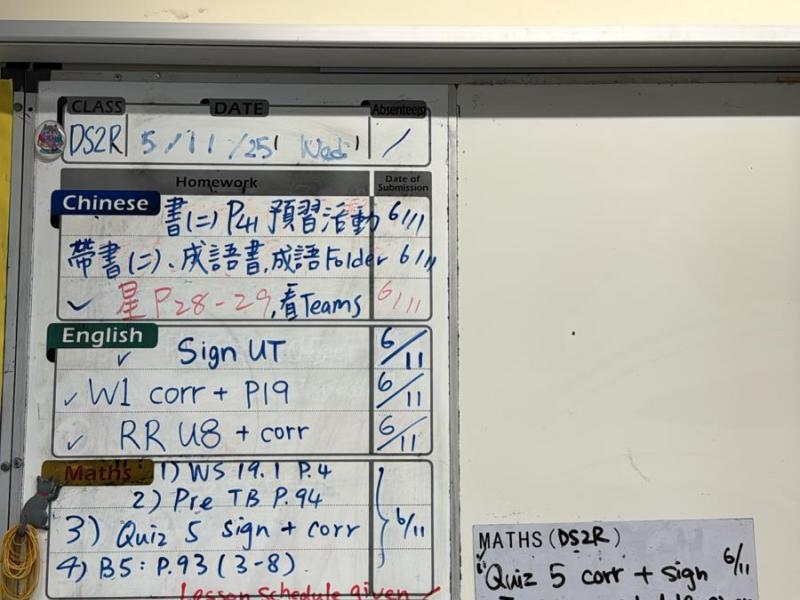 CLASS DATE Absentees
DS2R 5/11/25 (Wed) /
Homework Date of Submission
Chinese 書(二) P41 預習活動 6/11
帶書(二)、成語書,成語Folder 6/11
✓ 星 P28-29,看Teams 6/11
English
✓ Sign UT 6/11
✓ W1 corr + P19 6/11
✓ RR U8 + corr 6/11
Maths 1) WS 19.1 P.4
2) Pre TB P.94
3) Quiz 5 sign + corr 6/11
4) B5: P.93 (3-8)
Lesson schedule given ✓
MATHS (DS2R)
Quiz 5 corr + sign 6/11